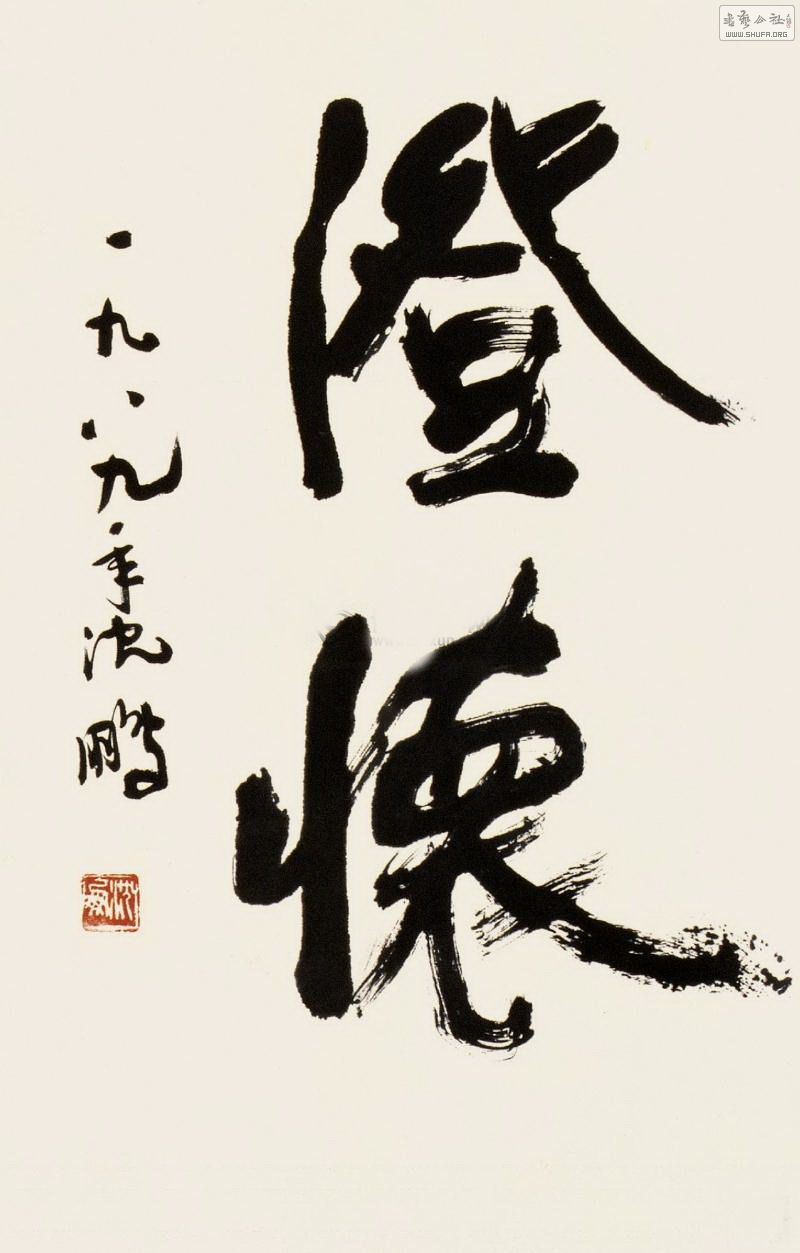 澄懷
一九八九年沈鹏
書藝公社
WWW.SHUFA.ORG